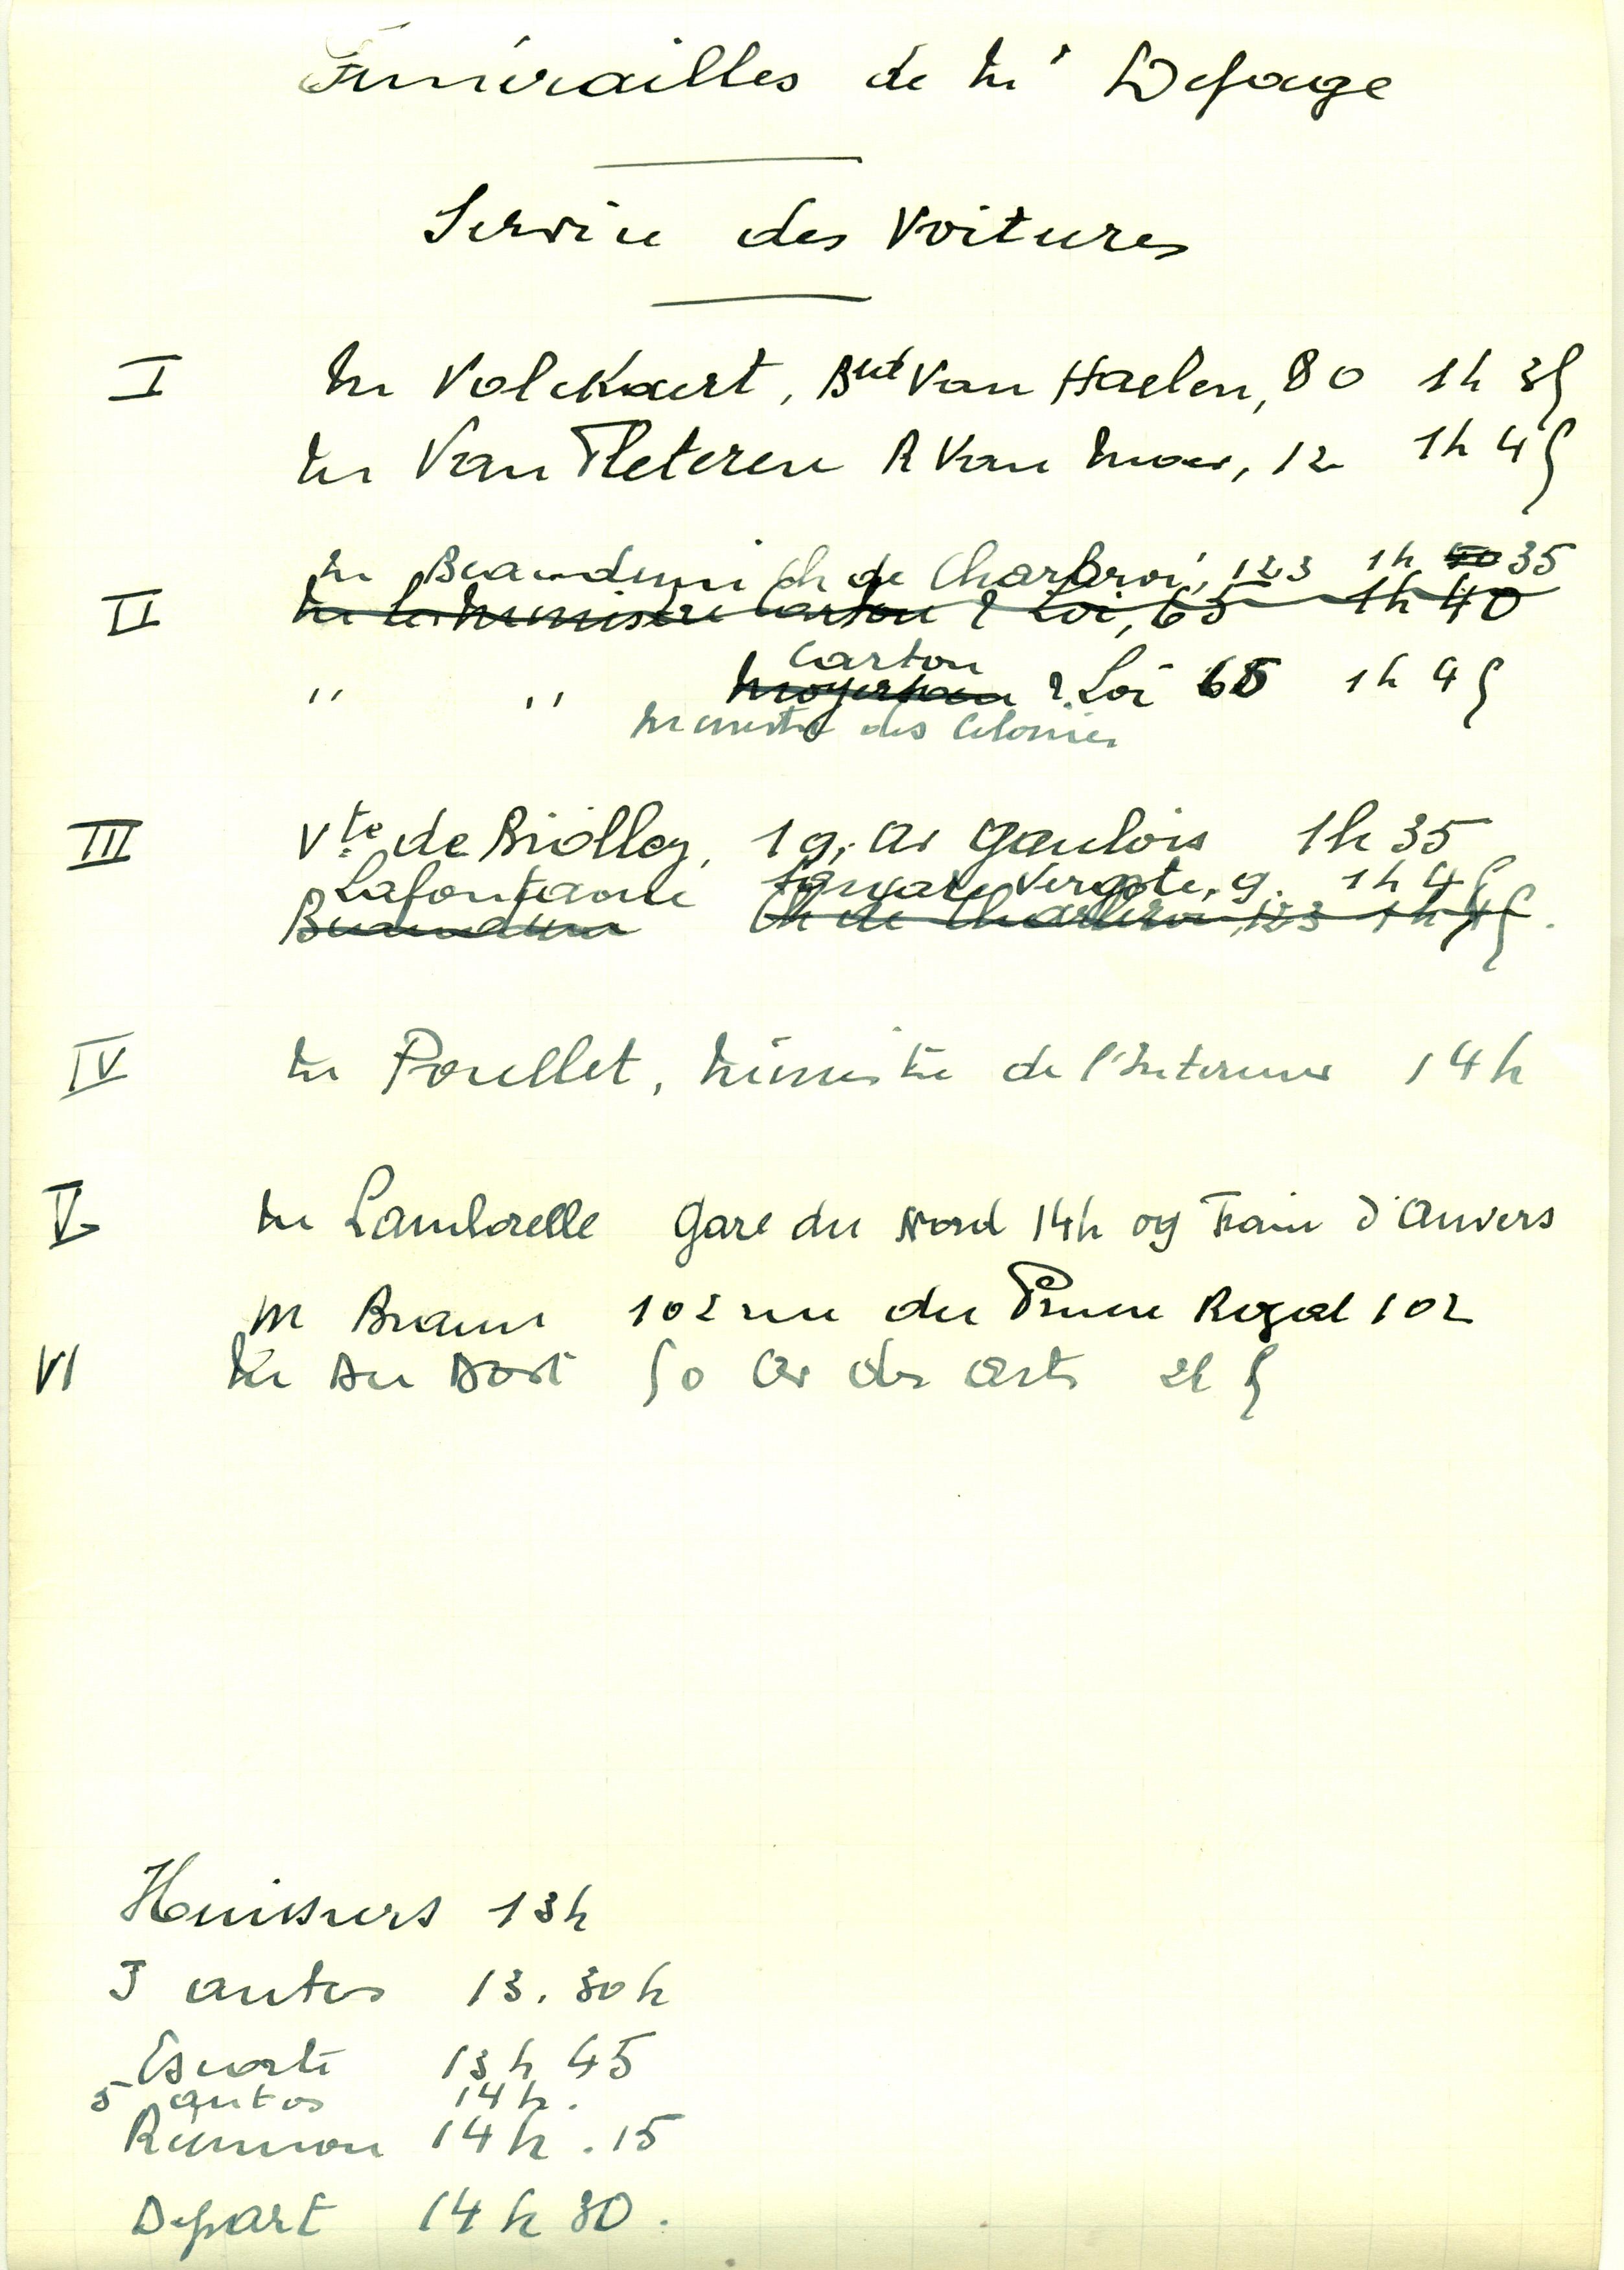 Funérailles de Mr Depage
Service des Voitures
I Mr Volckaert, Bld Van Haelen, 80 1h 35
Mr Van Fleteren R Van Moer, 12 1h 45
Mr Ch de Charleroi, 123 1h 40 35
II Mr le Ministre Carton r Loi, 65 1h 40
Carton
" " Moyersoen r. Loi 65 1h 45
Ministre des Colonies
III Vte de Biolley, 19, Av Gaulois 1h 35
Lafontaine Square Vergote, 9. 1h 45
Ch de Charleroi, 123 1h 45.
IV Mr Poullet, Ministre de l'Interieur 14h
V Mr Lambrelle Gare du Nord 14h 09 Train d'Anvers
M Braun 102 rue du Prince Royal 102
VI Mr Du Bost 50 Av des Arts 2h 5
Huissiers 13h
3 autos 13.30h
Escorte 13h 45
5 autos 14h.
Reunion 14h.15
Depart 14h 30.